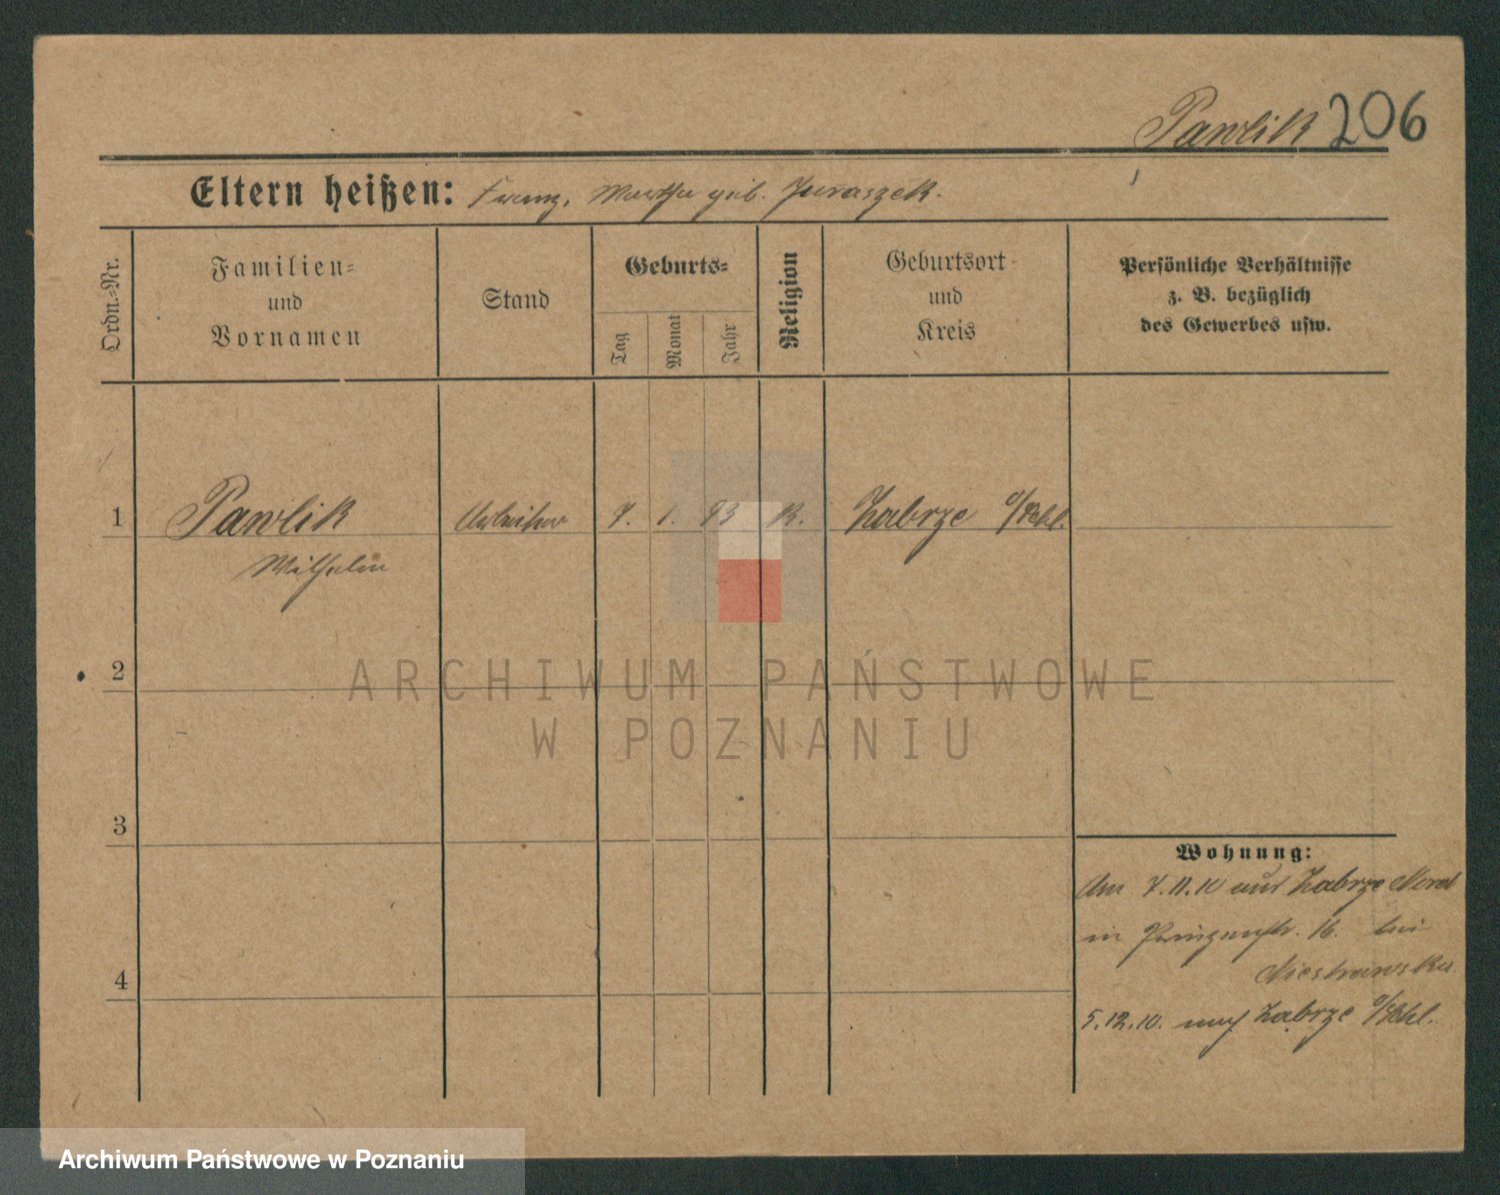 Pawlik 206
Eltern heißen: Franz, Martha geb. Juraszek.
Ordn.-Nr.
Familien-
und
Vornamen
Stand
Geburts-
Tag
Monat
Jahr
Religion
Geburtsort
und
Kreis
Persönliche Verhältnisse
z. B. bezüglich
des Gewerbes usw.
1 Pawlik Arbeiter 7. 1. 93 K. Zabrze O/Schl.
Wilhelm
2
ARCHIWUM PAŃSTWOWE
W POZNANIU
3
Wohnung:
Am 7.11.10 aus Zabrze Nord
in Prinzenstr. 16. bei
4
5.12.10. nach Zabrze O/Schl.
Archiwum Państwowe w Poznaniu